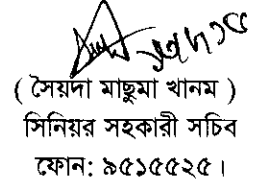 ( সৈয়দা মাছুমা খানম )
সিনিয়র সহকারী সচিব
ফোন: ৯৫১৫৫২৫।